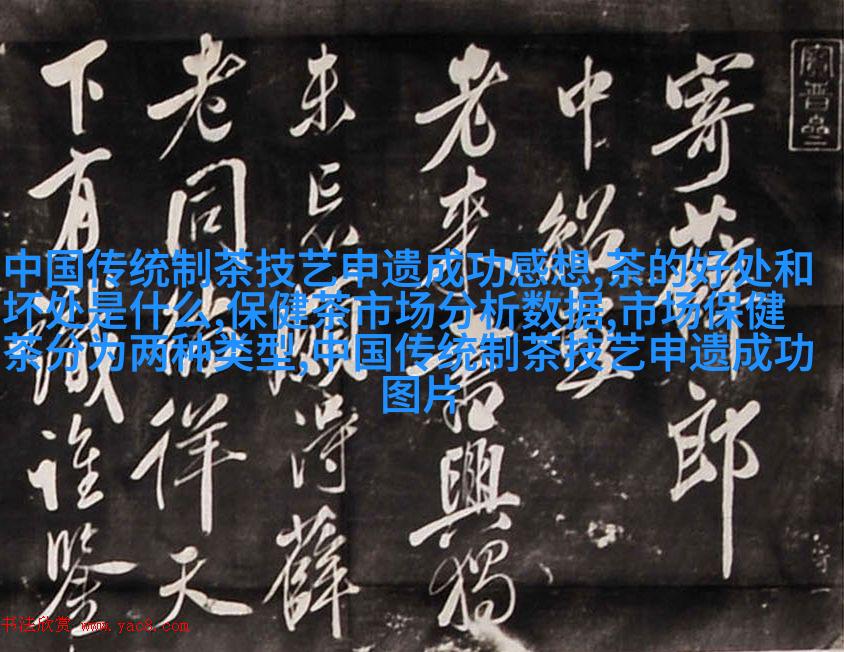 中国传统制茶技艺申遗成功感想,茶的好处和
坏处是什么,保健茶市场分析数据,市场保健
茶分为两种类型,中国传统制茶技艺申遗成功
图片
寄薛郎
中紹彭
老来書興獨
未忘頗得薛
老同徜徉天
下有識誰鑒
书法欣赏 www.yac8.com